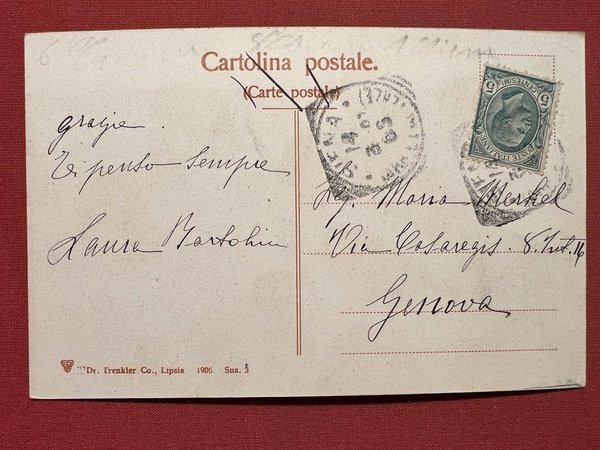 Cartolina postale.
(Carte postale)
grazie
Ti penso sempre
Laura Bartolini
Sig. Maria Merkel
Via Casaregis. 8. Int. 16
Genova
SIENA
14
09
Dr. Trenkler Co., Lipsia 1906 Sna. 3
POSTE ITALIANE
CENTESIMI
5 5